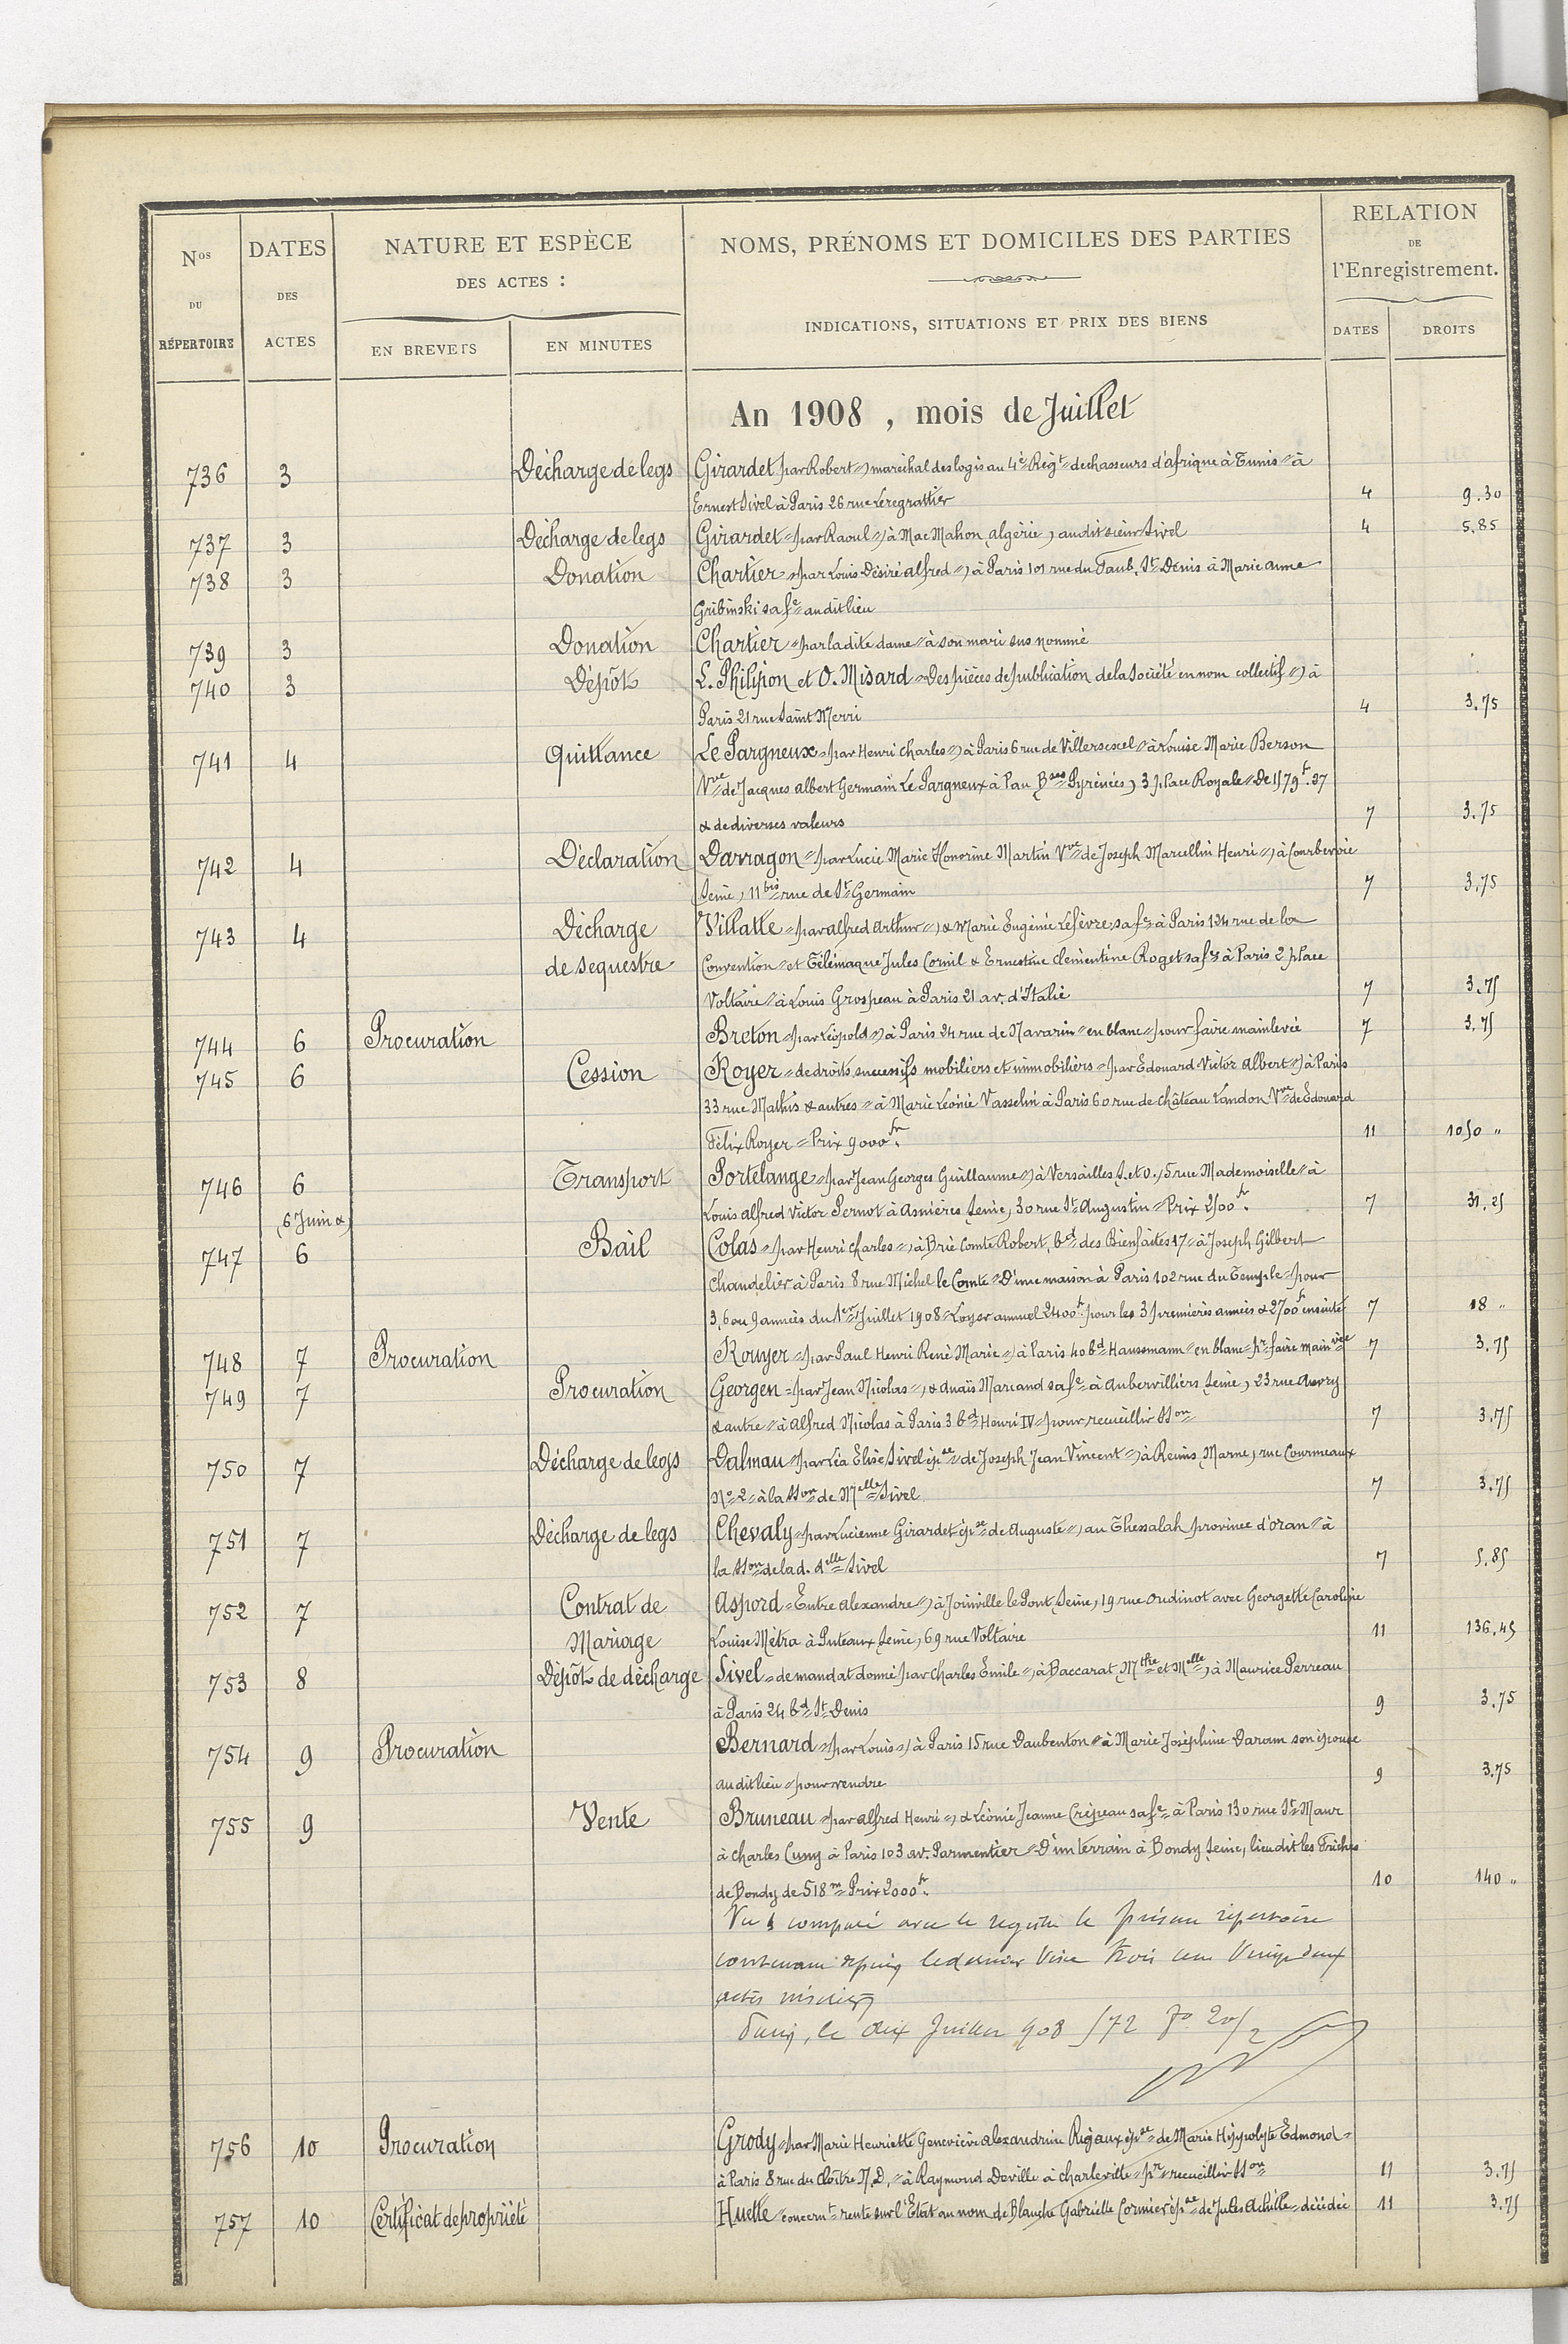 Nos DU RÉPERTOIRE
DATES DES ACTES
NATURE ET ESPÈCE DES ACTES :
EN BREVETS
EN MINUTES
NOMS, PRÉNOMS ET DOMICILES DES PARTIES
INDICATIONS, SITUATIONS ET PRIX DES BIENS
RELATION DE l'Enregistrement.
DATES
DROITS
An 1908 , mois de Juillet
736 3 Décharge de legs Girardet (par Robert=) maréchal des logis au 4è Régt= de chasseurs d'afrique à Tunis = à
Ernest Sivel à Paris 26 rue Leregrattier 4 9.30
737 3 Décharge de legs Girardet = (par Raoul=) à Mac Mahon, algérie, audit sieur Sivel 4 5.85
738 3 Donation Chartier = (par Louis Désiré alfred=) à Paris 101 rue du Faub. St= Denis à Marie anne
Gribinski sa fe= audit lieu
739 3 Donation Chartier = par ladite dame = à son mari sus nommé
740 3 Dépôt L. Philipon et O. Misard = Des pièces de publication de la Société en nom collectif =) à
Paris 21 rue Saint Merri 4 3.75
741 4 Quittance Le Pargneux = (par Henri Charles=) à Paris 6 rue de Villersexel = à Louise Marie Berson
Vve= de Jacques albert Germain Le Pargneux à Pau, Bses Pyrénées, 3 place Royale = De 1579f.37
& de diverses valeurs 7 3.75
742 4 Déclaration Darragon = (par Lucie Marie Honorine Martin Vve= de Joseph Marcellin Henri=) à Courbevoie
Seine, 11bis= rue de St= Germain 7 3.75
743 4 Décharge de sequestre Villatte = (par alfred arthur=) & Marie Eugénie Lefèvre sa fe= à Paris 134 rue de la
Convention = et Télémaque Jules Cornil & Ernestine Clémentine Roget sa fe= à Paris 2 place
Voltaire = à Louis Grospeau à Paris 21 av. d'Italie 7 3.75
744 6 Procuration Breton = (par Léopold=) à Paris 24 rue de Navarin = en blanc = pour faire mainlevée 7 3.75
745 6 Cession Royer = de droits successifs mobiliers et immobiliers = (par Edouard Victor albert=) à Paris
33 rue Mathis & autres = à Marie Léonie Vasselin à Paris 60 rue de Château Landon Vve= de Edouard
Félix Royer = Prix 9000fr. 11 1050 "
746 6 Transport Portelange = (par Jean Georges Guillaume=) à Versailles, S. et O., 5 rue Mademoiselle = à
Louis alfred Victor Pernot à Asnières Seine, 30 rue St= Augustin = Prix 2500fr. 7 31.25
(6 Juin &)
747 6 Bail Colas = (par Henri Charles=) à Brie Comte Robert, bd= des Bienfaites 17 = à Joseph Gilbert
Chandelier à Paris 8 rue Michel le Comte = D'une maison à Paris 102 rue du Temple = pour
3, 6 ou 9 années du 1er= Juillet 1908 = Loyer annuel 2400f. pour les 3 premières années & 2700f ensuite 7 18 "
748 7 Procuration Rouyer = (par Paul Henri René Marie=) à Paris 40 bd= Haussmann = en blanc = pr= faire mainvée 7 3.75
749 7 Procuration Georgen = (par Jean Nicolas=) & Anaïs Marcand sa fe= à Aubervilliers Seine, 23 rue Auvry
& autre = à Alfred Nicolas à Paris 3 bd= Henri IV = pour recueillir sson= 7 3.75
750 7 Décharge de legs Dalmau = (par Léa Elise Sivel épse= de Joseph Jean Vincent=) à Reims, Marne, rue Courmeaux
No= 2 = à la sson= de Melle= Sivel 7 3.75
751 7 Décharge de legs Chevaly = (par Lucienne Girardet épse= de Auguste=) au Thessalah province d'oran = à
la sson= de lad. delle= Sivel 7 5.85
752 7 Contrat de Mariage Aspord = Entre alexandre=) à Joinville le Pont, Seine, 19 rue Oudinot avec Georgette Caroline
Louise Métra à Puteaux, Seine, 69 rue Voltaire 11 136.45
753 8 Dépôt de décharge Sivel = de mandat donné (par Charles Emile=) à Baccarat, Mthe= et Melle=, à Maurice Perreau
à Paris 24 bd= St= Denis 9 3.75
754 9 Procuration Bernard = (par Louis=) à Paris 15 rue Daubenton = à Marie Joséphine Daram son épouse
audit lieu = pour vendre 9 3.75
755 9 Vente Bruneau = (par alfred Henri=) & Léonie Jeanne Crépeau sa fe= à Paris 130 rue St= Maur
à Charles Cuny à Paris 103 av. Parmentier = D'un terrain à Bondy Seine, lieu dit les Friches
de Bondy de 518m= Prix 2000fr. 10 140 "
Vu & comparé avec le registre le présent répertoire
contenant depuis le dernier Visa trois cent vingt deux
actes inscrits
Paris, le dix Juillet 908 572 fo. 20/2
756 10 Procuration Grody = (par Marie Henriette Geneviève alexandrine Rigaux épse= de Marie Hippolyte Edmond =
à Paris 8 rue du Cloître N.D. = à Raymond Deville à Charleville = pr= recueillir sson= 11 3.75
757 10 Certificat de propriété Huette = concernt= rente sur l'Etat au nom de Blanche Gabrielle Cormier épse= de Jules Achille = décédée 11 3.75